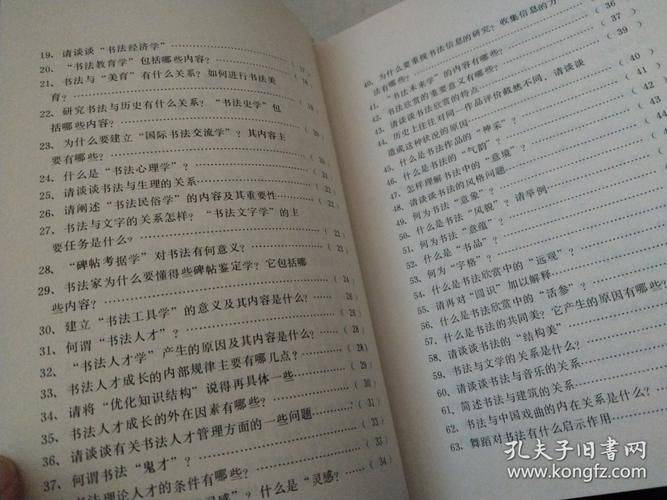 19、请谈谈“书法经济学”
20、“书法教育学”包括哪些内容?
21、书法与“美育”有什么关系?如何进行书法美
育?
22、研究书法与历史有什么关系?“书法史学”包
括哪些内容?
23、为什么要建立“国际书法交流学”?其内容主
要有哪些?
24、什么是“书法心理学”?
25、请谈谈书法与生理的关系
26、请阐述“书法民俗学”的内容及其重要性
27、书法与文字的关系怎样?“书法文字学”的主
要任务是什么?
28、“碑帖考据学”对书法有何意义?
29、书法家为什么要懂得些碑帖鉴定学?它包括哪
些内容?
30、建立“书法工具学”的意义及其内容是什么?
31、何谓“书法人才”?
32、“书法人才学”产生的原因及其内容是什么?
33、书法人才成长的内部规律主要有哪几点?
34、请将“优化知识结构”说得再具体一些
35、书法人才成长的外在因素有哪些?
36、请谈谈有关书法人才管理方面的一些问题
37、何谓书法“鬼才”?
书法理论人才的条件有哪些?
什么是“灵感”?
40、为什么要重视书法信息的研究?收集信息的方
法有哪些?
41、“书法未来学”的内容有哪些?
42、书法欣赏的重要意义有哪些?
43、请谈谈书法欣赏的特点
44、历史上往往对同一作品评价截然不同,请谈谈
造成这种状况的原因
45、什么是书法作品的“神采”?
46、什么是书法的“气韵”?
47、怎样理解书法中的“意境”?
48、请谈谈书法的风格问题
49、何为书法“意象”?
50、什么是书法“风貌”?请举例
51、何为书法“意蕴”?
52、什么是“书品”?
53、何为“字格”?
54、什么是书法欣赏中的“远观”?
55、请再对“圆识”加以解释
56、什么是书法欣赏中的“活参”?
57、什么是书法的共同美?它产生的原因有哪些?
58、请谈谈书法的“结构美”
59、书法与文学的关系是什么?
60、请谈谈书法与音乐的关系
61、简述书法与建筑的关系
62、书法与中国戏曲的内在关系是什么?
63、舞蹈对书法有什么启示作用
孔夫子旧书网
www.kongfz.com